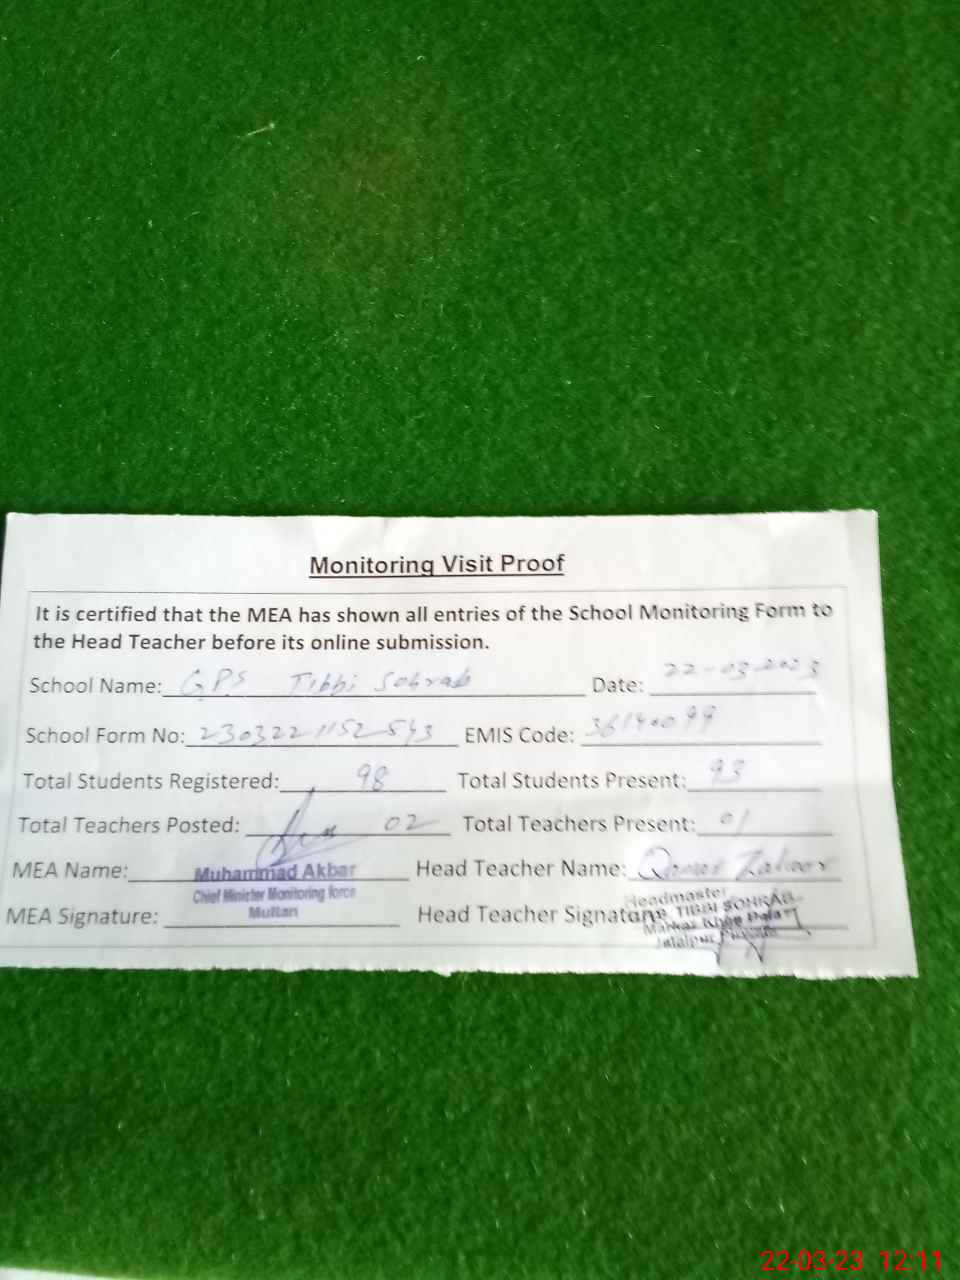 Monitoring Visit Proof
It is certified that the MEA has shown all entries of the School Monitoring Form to
the Head Teacher before its online submission.
School Name: GPS Tibbi Sohrab Date: 22-03-2023
School Form No: 230322 1152 543 EMIS Code: 36140099
Total Students Registered: 98 Total Students Present: 93
Total Teachers Posted: 02 Total Teachers Present: 01
MEA Name: Muhammad Akbar Head Teacher Name: Qamar Zahoor
Chief Minister Monitoring force
Multan
MEA Signature: Head Teacher Signature
Headmaster
TIBBI SOHRAB
Markaz Khan Bela
Jalalpur
22-03-23 12:11